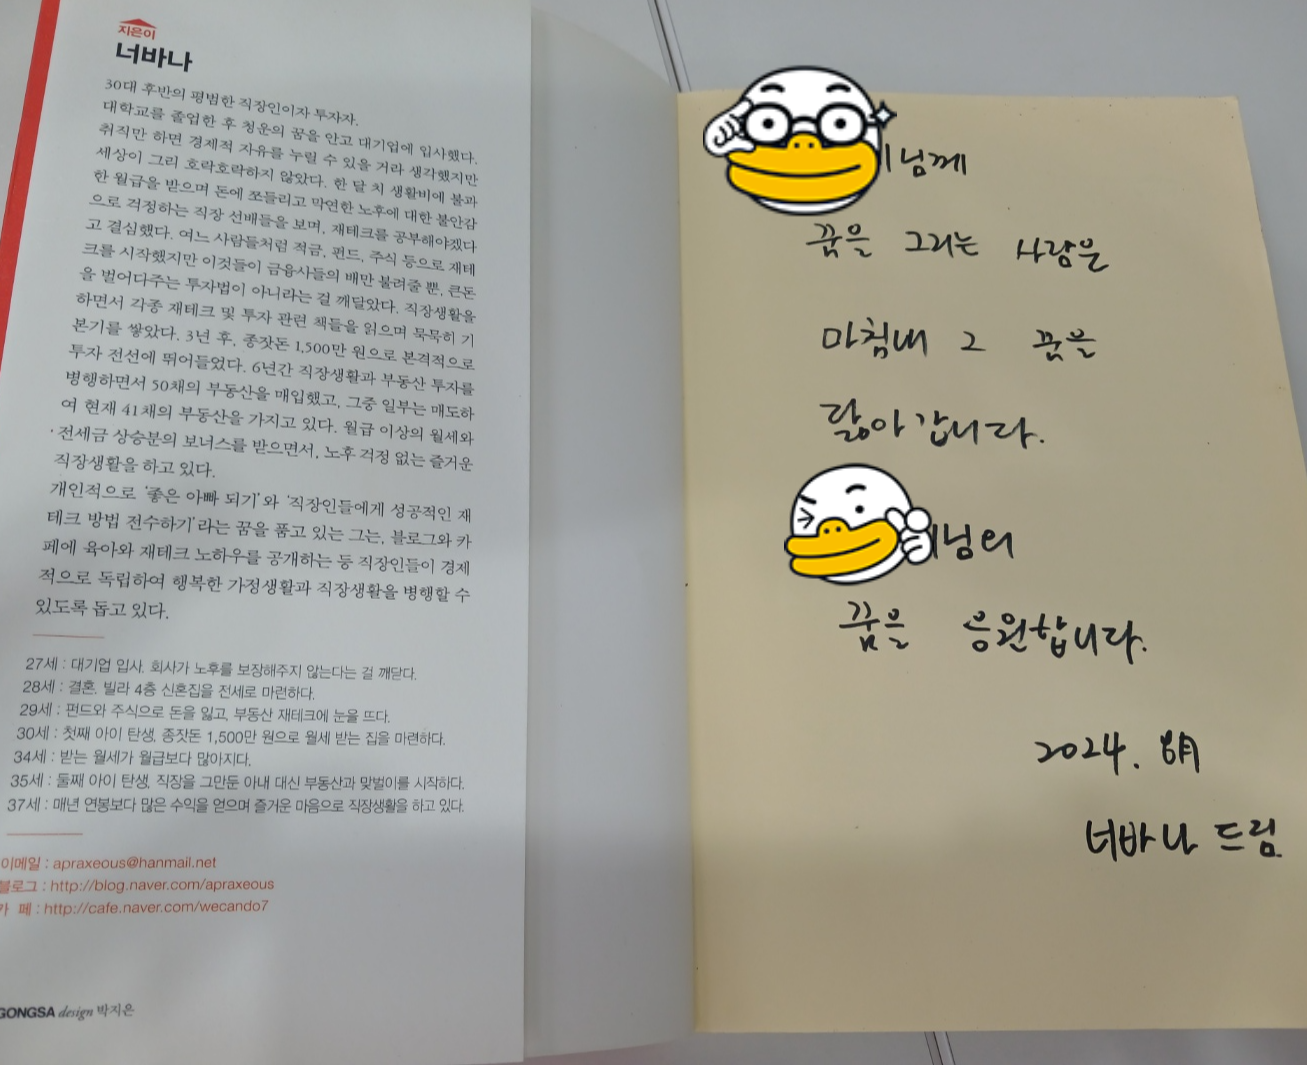 지은이
너바나
30대 후반의 평범한 직장인이자 투자자.
대학교를 졸업한 후 청운의 꿈을 안고 대기업에 입사했다.
취직만 하면 경제적 자유를 누릴 수 있을 거라 생각했지만
세상이 그리 호락호락하지 않았다. 한 달 치 생활비에 불과
한 월급을 받으며 돈에 쪼들리고 막연한 노후에 대한 불안감
으로 걱정하는 직장 선배들을 보며, 재테크를 공부해야겠다
고 결심했다. 여느 사람들처럼 적금, 펀드, 주식 등으로 재테
크를 시작했지만 이것들이 금융사들의 배만 불려줄 뿐, 큰돈
을 벌어다주는 투자법이 아니라는 걸 깨달았다. 직장생활을
하면서 각종 재테크 및 투자 관련 책들을 읽으며 묵묵히 기
본기를 쌓았다. 3년 후, 종잣돈 1,500만 원으로 본격적으로
투자 전선에 뛰어들었다. 6년간 직장생활과 부동산 투자를
병행하면서 50채의 부동산을 매입했고, 그중 일부는 매도하
여 현재 41채의 부동산을 가지고 있다. 월급 이상의 월세와
전세금 상승분의 보너스를 받으면서, 노후 걱정 없는 즐거운
직장생활을 하고 있다.
개인적으로 '좋은 아빠 되기'와 '직장인들에게 성공적인 재
테크 방법 전수하기'라는 꿈을 품고 있는 그는, 블로그와 카
페에 육아와 재테크 노하우를 공개하는 등 직장인들이 경제
적으로 독립하여 행복한 가정생활과 직장생활을 병행할 수
있도록 돕고 있다.
27세 : 대기업 입사. 회사가 노후를 보장해주지 않는다는 걸 깨닫다.
28세 : 결혼. 빌라 4층 신혼집을 전세로 마련하다.
29세 : 펀드와 주식으로 돈을 잃고, 부동산 재테크에 눈을 뜨다.
30세 : 첫째 아이 탄생, 종잣돈 1,500만 원으로 월세 받는 집을 마련하다.
34세 : 받는 월세가 월급보다 많아지다.
35세 : 둘째 아이 탄생, 직장을 그만둔 아내 대신 부동산과 맞벌이를 시작하다.
37세 : 매년 연봉보다 많은 수익을 얻으며 즐거운 마음으로 직장생활을 하고 있다.
이메일 : apraxeous@hanmail.net
블로그 : http://blog.naver.com/apraxeous
카 페 : http://cafe.naver.com/wecando7
GONGSA design 박지은
님께
꿈을 그리는 사람은
마침내 그 꿈을
닮아 갑니다.
님의
꿈을 응원합니다.
2024. 8月
너바나 드림